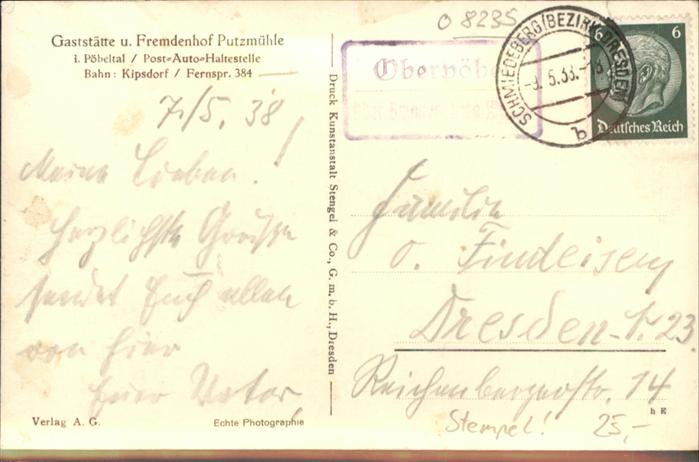 O 8235
Gaststätte u. Fremdenhof Putzmühle
i. Pöbeltal / Post-Auto-Haltestelle
Bahn: Kipsdorf / Fernspr. 384
7/5. 38
Meine Lieben!
Herzlichste Grüsse
sendet Euch allen
von hier
Euer Vater
Verlag A. G.
Echte Photographie
Druck Kunstanstalt Stengel & Co., G. m. b. H., Dresden
Oberpöbel
SCHMIEDEBERG (BEZIRK DRESDEN)
5.38.
b
6 6
Deutsches Reich
Familie
O. Findeisen
Dresden-N. 23
Reichenbergerstr. 14
h E
Stempel! 25,-